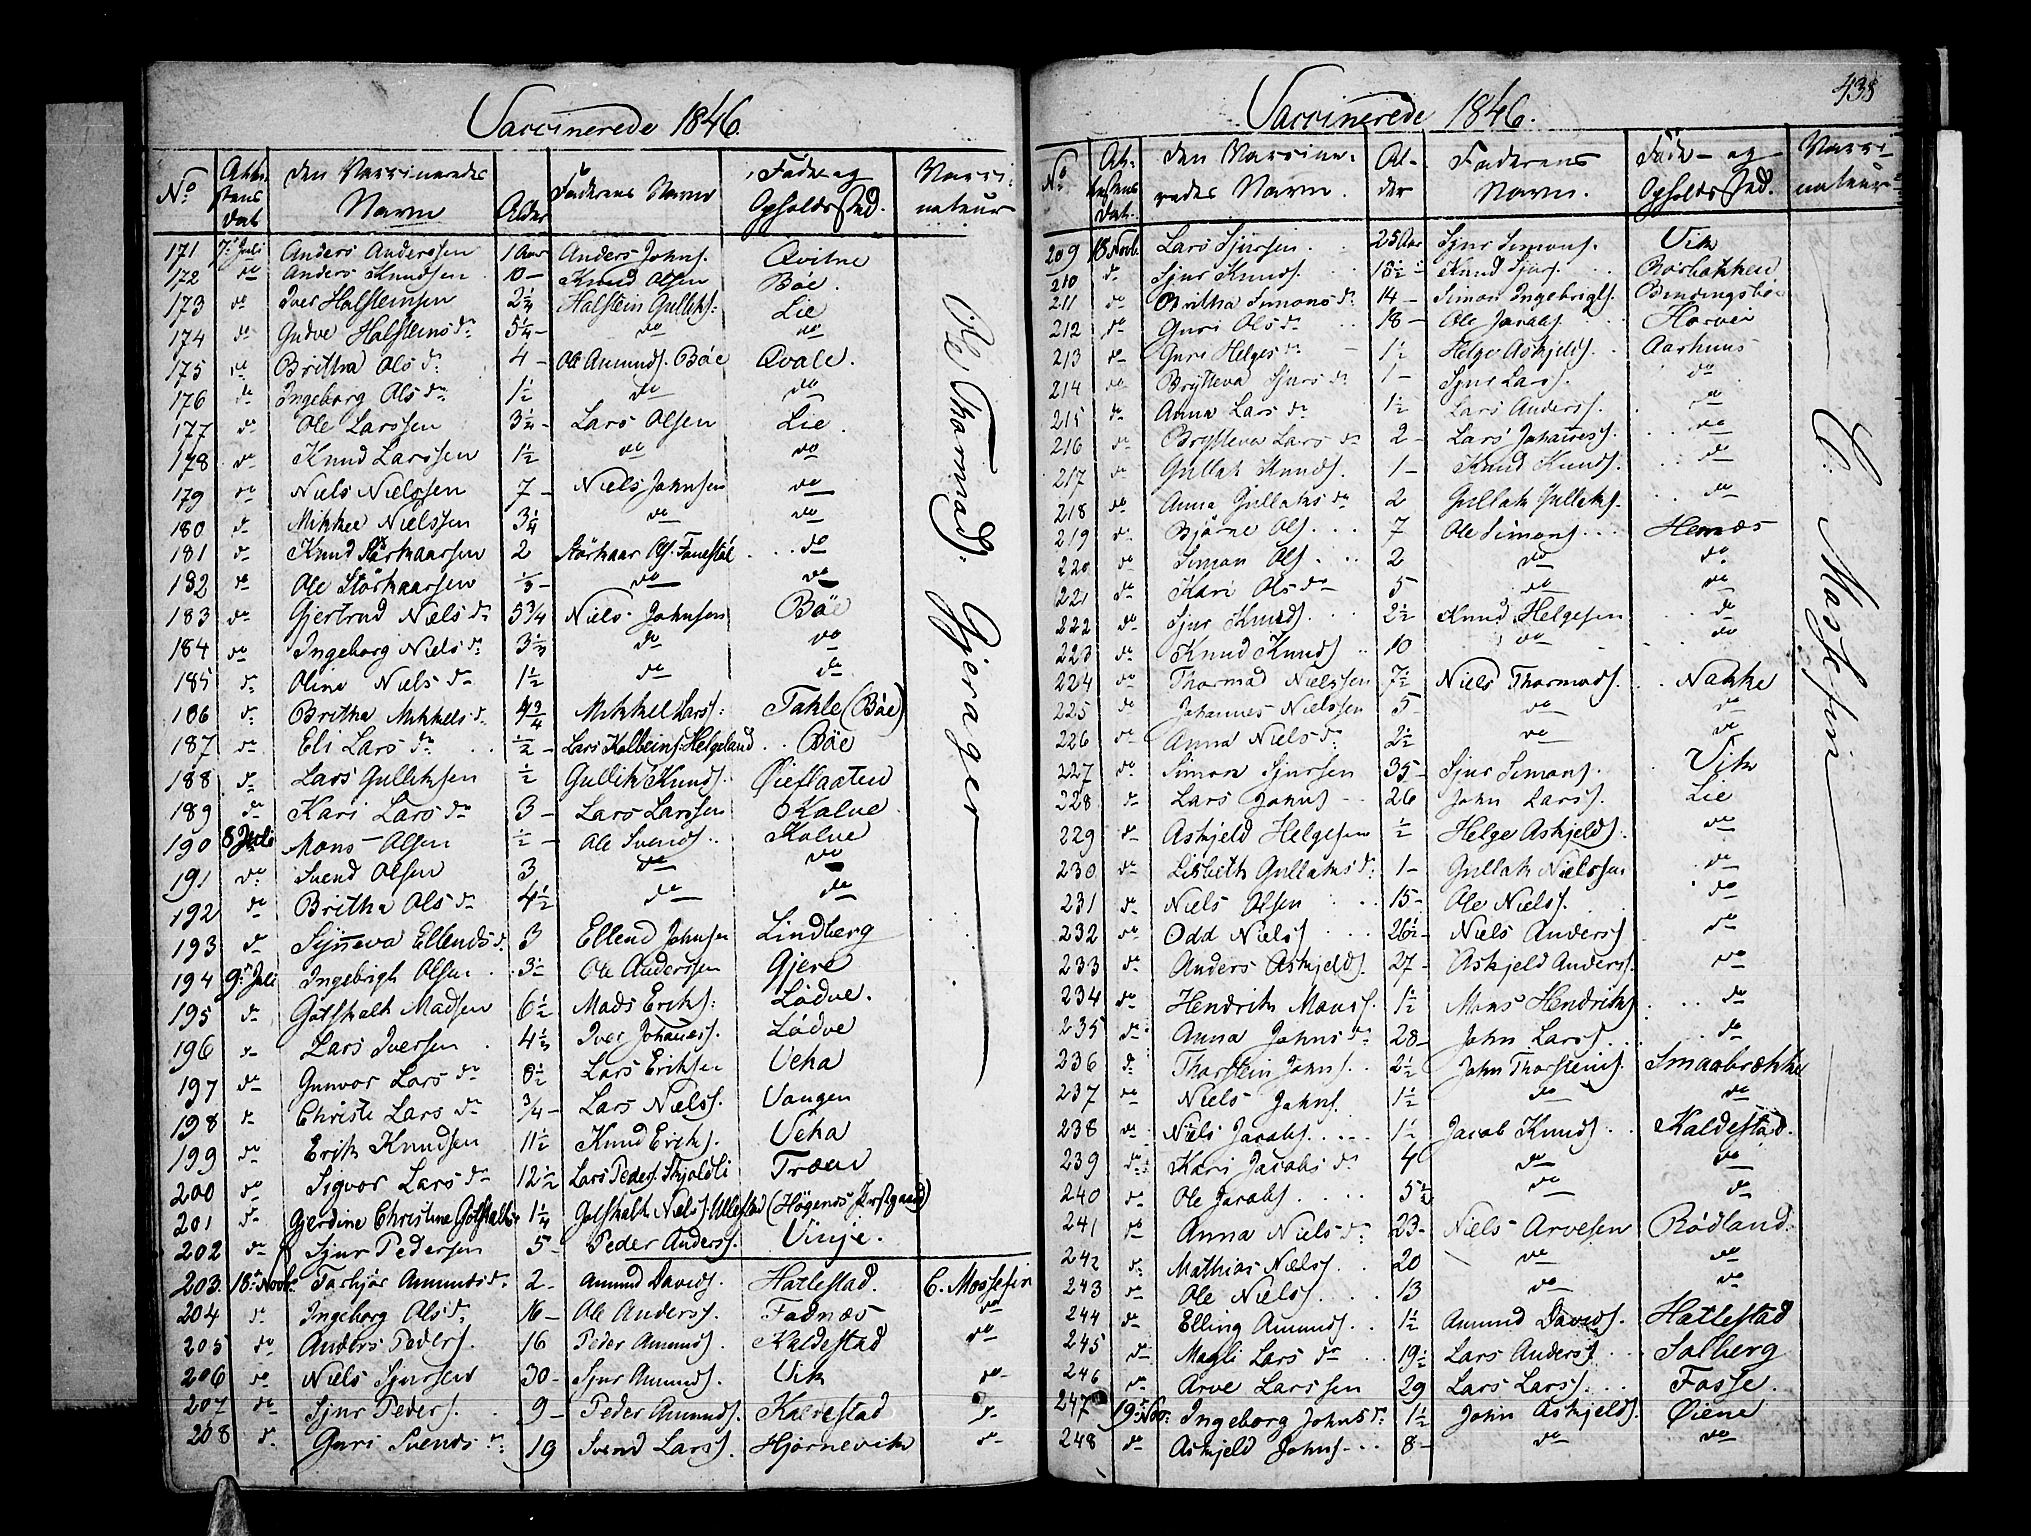 Vaccinerede 1846.
No Attestens Dat. Den Vaccineredes Navn Alder Faderens Navn Føde og Opholds Sted. Vaccinateur
171 7de Juli Anders Anderssen 1 Aar Anders Johns. Qvitne
172 do Anders Knudsen 10 - Knud Olsen Bøe.
173 do Iver Halsteinsen 2 1/4 Halstein Gulliks: Lie
174 do Gudve Halsteinsdr 5 1/4 - do do
175 do Britha Olsdr 4 - Ole Amunds. Bøe Qvale.
176 do Ingeborg Olsdr 1 1/2 do do
177 do Ole Larssen 3 1/2 - Lars Olsen Lie.
178 do Knud Larssen 1 1/2 do do
179 do Niels Nielssen 7 - Niels Johnsen do
180 do Mikkel Nielssen 3 1/4 do do
181 do Knud Størkaarsen 2 Størkaar Ols. Fonestøl do
182 do Ole Størkaarsen 1/3 - do do
183 do Gjertrud Nielsdr 5 3/4 Niels Johnsen Bøe
184 do Ingeborg Nielsdr 3 1/4 do do
185 do Oline Nielsdr 1 1/2 do do
186 do Britha Mikkelsdr 4 3/4 Mikkel Lars: Takle (Bøe)
187 do Eli Larsdr 1/2 - Lars Kolbeins. Helgeland Bøe
188 do Lars Gulliksen 1/2 Gullik Knuds. Øieflaaten
189 do Kari Larsdr 3 - Lars Larssen Kalve
190 8 Juli Mons Olsen 1/2 - Ole Svends. Kalve
191 do Svend Olsen 3 do do
192 do Britha Olsdr 4 1/2 do do
193 do Synneva Ellendsdr 3 Ellend Johnsen Lindberg
194 9de Juli Ingebrigt Olsen 3 1/2 Ole Anderssen Gjere
195 do Gotskalk Madsen 6 1/2 Mads Eriks: Lødve.
196 do Lars Iversen 4 1/2 Iver Johaness. Lødve
197 do Gunvor Larsdr 8 1/2 Lars Eriksen Veka
198 do Christi Larsdr 3/4 - Lars Niels. Vangen
199 do Erik Knudsen 11 1/2 Knud Eriks. Veka
200 do Sigvor Larsdr 12 1/2 Lars Peders. Skjoldli Træen
201 do Gjerdine Christine Gotskalksdr 1 1/4 Gotskalk Niels. Ullestad (Høgenes Præstgaard)
202 do Sjur Pedersen 5 - Peder Anders. Vinje.
203 18de Novbr Torkjør Amundsdr 2 - Amund Davids. Hatlestad. C. Mossefin
204 do Ingeborg Olsdr 16 - Ole Anders. Fadnæs do
205 do Anders Peders. 16 Peder Amunds. Kaldestad do
206 do Niels Sjursen 30 - Sjur Amunds. Vik do
207 do Sjur Peders. 9 - Peder Amunds. Kaldestad do
208 do Guri Svendsdr 19 Svend Larss. Hjørnevik do
Ole Thormods. Gjerager
Vaccinerede 1846.
438
No Attestens Dat. Den Vaccineredes Navn. Alder Faderens Navn. Føde- og Opholds Sted. Vaccinateur
209 18 Novb. Lars Sjursen 25 Aar Sjur Simons. Vik
210 do Sjur Knuds. 15 1/2 Knud Sjurs. Børbakken
211 do Britha Simonsdr 14 - Simon Ingebrigts. Bindingsbøe
212 do Guri Olsdr 18 - Ole Jacobs. Horvei
213 do Guri Helgesdr 1 1/2 Helge Askjelds. Aarhuus
214 do Brytteva Sjursdr 1 - Sjur Lars. do
215 do Anna Larsdr 1 1/2 Lars Anderss. do
216 do Brytteva Larsdr 2 - Lars Johaness. do
217 do Gullak Knuds. 1 - Knud Knuds. do
218 do Anna Gullaksdr 2 Gullak Gullaks. do
219 do Bjørne Ols. 7 Ole Simons. Hernæs
220 do Simon Ols. 2 do do
221 do Kari Olsdr 5 do do
222 do Sjur Knuds. 2 1/2 Knud Helgesen do
223 do Knud Knuds. 10 do do
224 do Thormod Nielssen 7 1/2 Niels Thormods. Nakke
225 do Johannes Nielssen 5 - do do
226 do Anna Nielsdr 2 1/2 do do
227 do Simon Sjursen 35 - Sjur Simons. Vik
228 do Lars Johns. 26 John Lars. Lie
229 do Askjeld Helgesen 1/2 Helge Askjelds. do
230 do Lisbeth Gullaksdr 1 - Gullak Nielssen do
231 do Niels Olsen 15 - Ole Niels. do
232 do Odd Niels. 26 1/2 - Niels Anders. do
233 do Anders Askjelds. 27 - Askjeld Anders. do
234 do Hendrik Monss. 1 1/2 Mons Hendriks. do
235 do Anna Johnsdr 28 - John Lars. do
236 do Thorstein Johns. 2 1/2 John Thorsteins. Smaabrække
237 do Niels Johns. 1 1/2 do do
238 do Niels Jacobs. 1 1/2 Jacob Knuds. Kaldestad.
239 do Kari Jacobsdr 4 do do
240 do Ole Jacobs. 5 1/2 do do
241 do Anna Nielsdr 23 - Niels Arvesen Rødland.
242 do Mathias Niels. 20 do do
243 do Ole Niels. 13 do do
244 do Elling Amunds. 1 1/2 Amund Davids. Hatlestad
245 do Magli Larsdr 19 1/2 Lars Anders. Solberg
246 do Arve Larssen 29 Lars Lars. Fosse.
247 19de Nov: Ingeborg Johnsdr 1 1/2 John Askjelds. Øiene
248 do Askjeld Johns. 8 - do do
C. Mossefin